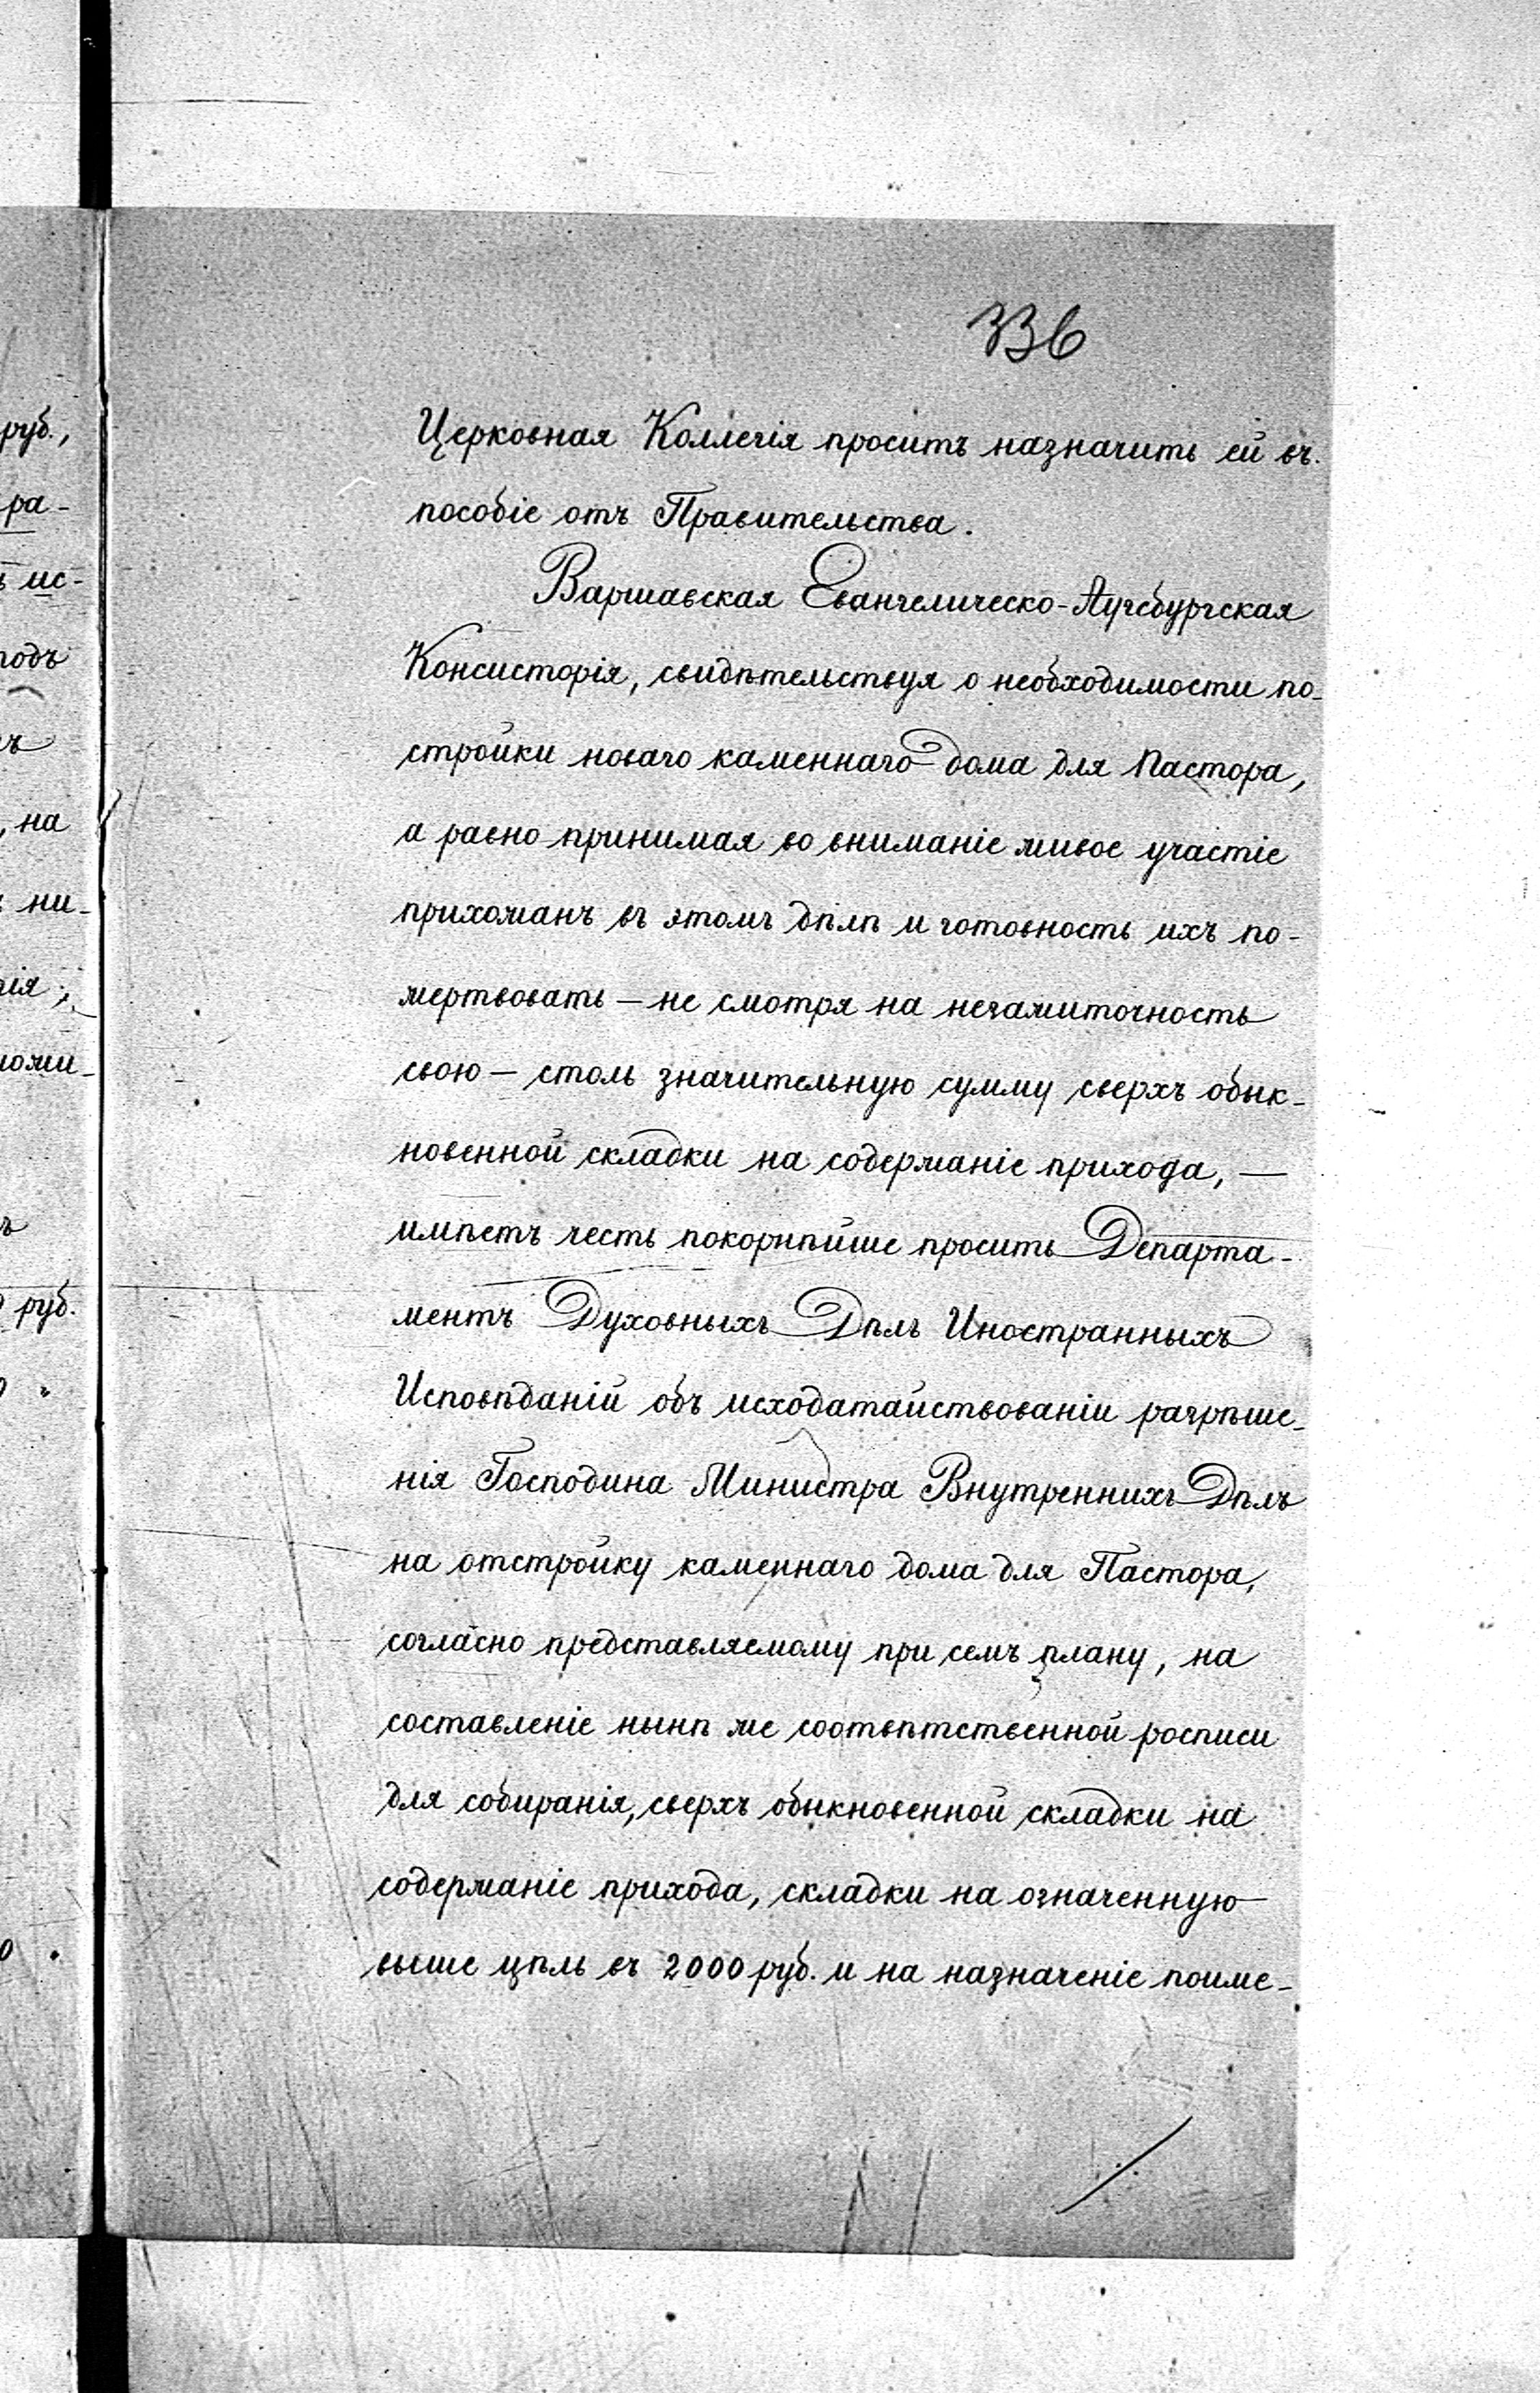 336
руб.,
ра-
ис-
подъ
на
ни-
нія;
руб.
Церковная Коллегія проситъ назначить ей въ
пособіе отъ Правительства.
Варшавская Евангелическо-Аугсбургская
Консисторія, свидѣтельствуя о необходимости по-
стройки новаго каменнаго дома для Пастора,
а равно принимая во вниманіе живое участіе
прихожанъ въ этомъ дѣлѣ и готовность ихъ по-
жертвовать — не смотря на незажиточность
свою — столь значительную сумму сверхъ обык-
новенной складки на содержаніе прихода, —
имѣетъ честь покорнѣйше просить Департа-
ментъ Духовныхъ Дѣлъ Иностранныхъ
Исповѣданій объ исходатайствованіи разрѣше-
нія Господина Министра Внутреннихъ Дѣлъ
на отстройку каменнаго дома для Пастора,
согласно представляемому при семъ плану, на
составленіе нынѣ же соотвѣтственной росписи
для собиранія, сверхъ обыкновенной складки на
содержаніе прихода, складки на означенную
выше цѣль въ 2000 руб. и на назначеніе поиме-